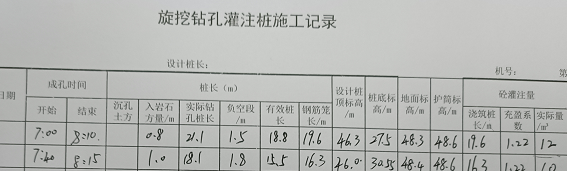 旋挖钻孔灌注桩施工记录
设计桩长: 机号: 第
日期 成孔时间 桩长(m) 设计桩顶标高/m 桩底标高/m 地面标高/m 护筒标高/m 砼灌注量
开始 结束 沉孔土方 入岩石方量/m 实际钻孔桩长 负空段/m 有效桩长 钢筋笼长/m 浇筑桩长/m 充盈系数 实际量/m³
7:00 8:10 0.8 21.1 1.5 18.8 19.6 46.3 27.5 48.3 48.6 19.6 1.22 12
7:40 8:15 1.0 18.1 1.8 15.5 16.3 46.0 30.55 48.4 48.6 16.3 1.22 10